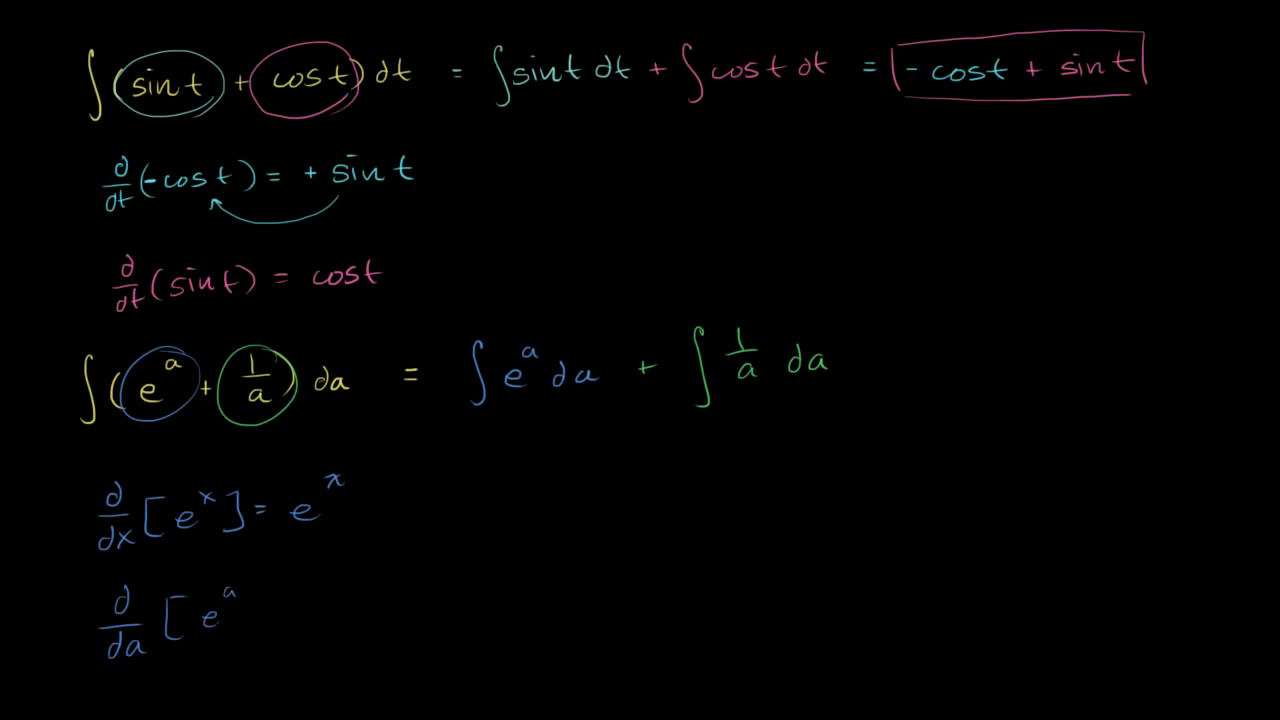 ∫(sin t + cos t) dt = ∫sin t dt + ∫cos t dt = - cos t + sin t
d/dt (-cos t) = + sin t
d/dt (sin t) = cos t
∫(e^a + 1/a) da = ∫e^a da + ∫1/a da
d/dx [e^x] = e^x
d/da [e^a